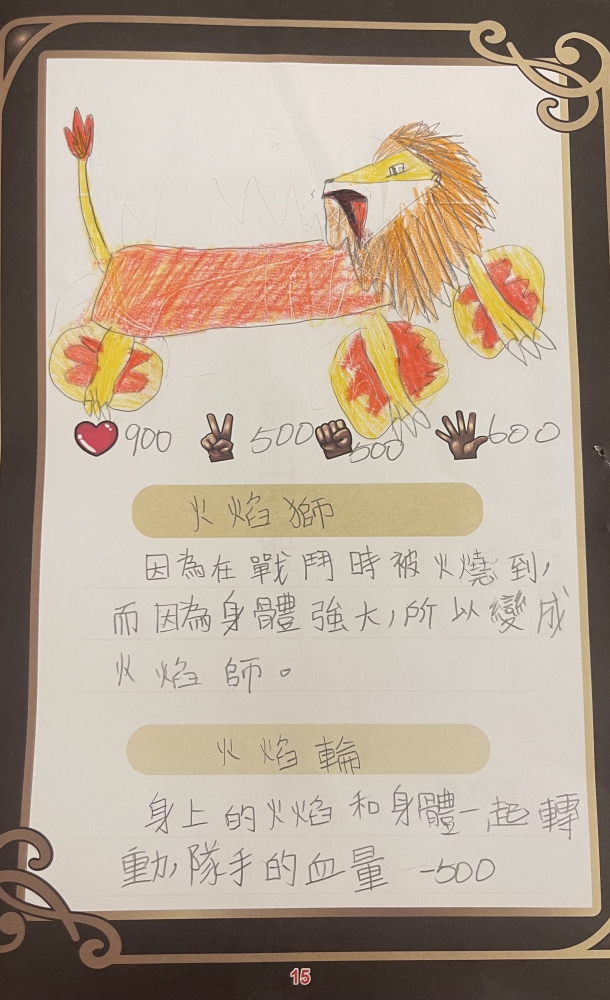 900 500 500 600
火焰獅
因為在戰鬥時被火燒到,
而因為身體強大,所以變成
火焰師。
火焰輪
身上的火焰和身體一起轉
動,隊手的血量-500
15